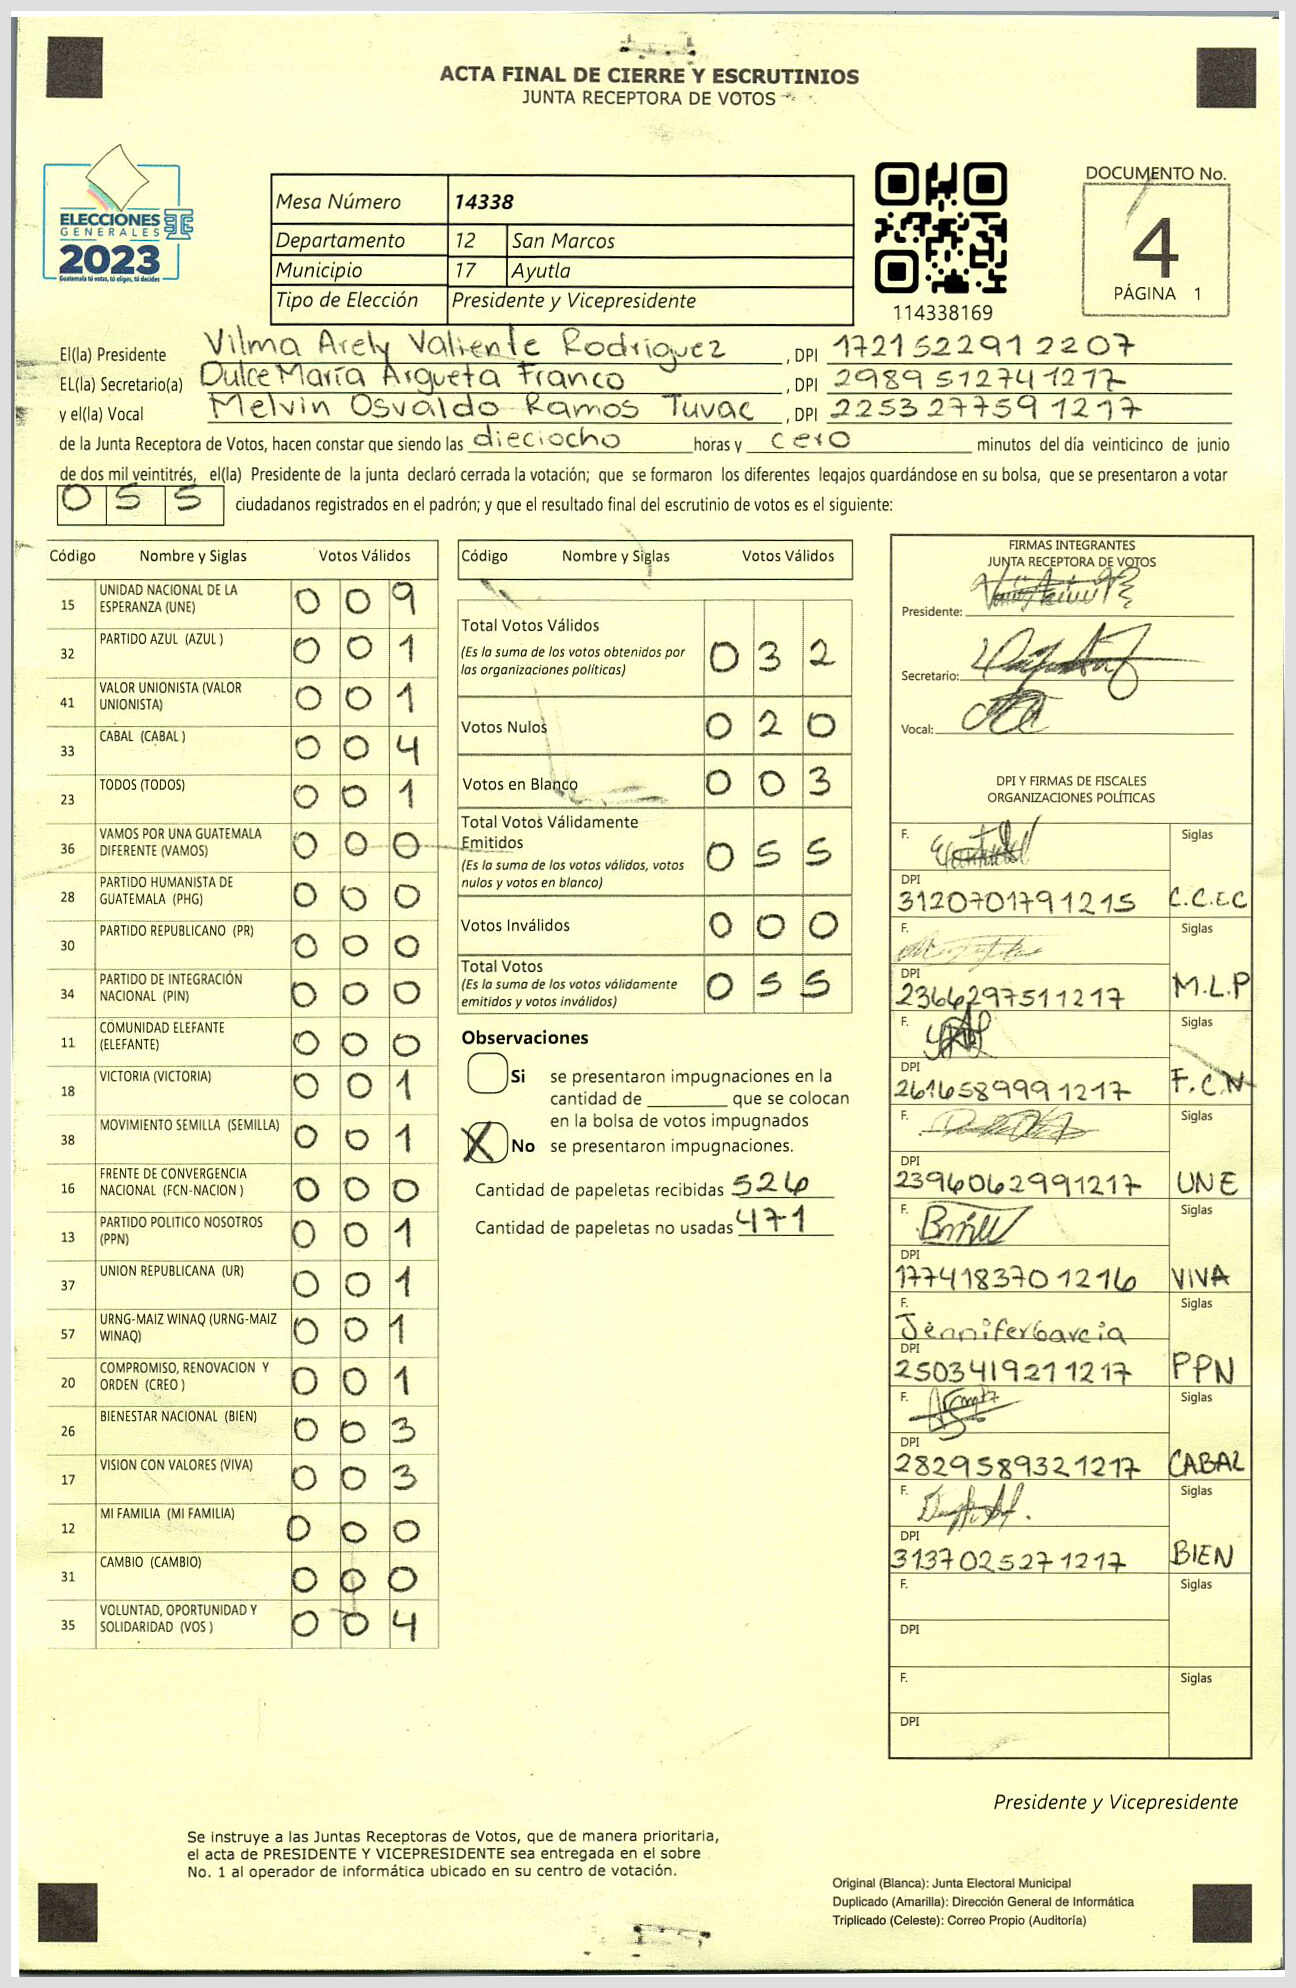 ACTA FINAL DE CIERRE Y ESCRUTINIOS
JUNTA RECEPTORA DE VOTOS
ELECCIONES
GENERALES
2023
Guatemala tú votas, tú eliges, tú decides
Mesa Número 14338
Departamento 12 San Marcos
Municipio 17 Ayutla
Tipo de Elección Presidente y Vicepresidente
114338169
DOCUMENTO No.
4
PÁGINA 1
El(la) Presidente Vilma Arely Valiente Rodriguez , DPI 1721522912207
EL(la) Secretario(a) Dulce María Argueta Franco , DPI 2989512741217
y el(la) Vocal Melvin Osvaldo Ramos Tuvac , DPI 2253277591217
de la Junta Receptora de Votos, hacen constar que siendo las dieciocho horas y cero minutos del día veinticinco de junio
de dos mil veintitrés, el(la) Presidente de la junta declaró cerrada la votación; que se formaron los diferentes legajos guardándose en su bolsa, que se presentaron a votar
055 ciudadanos registrados en el padrón; y que el resultado final del escrutinio de votos es el siguiente:
Código Nombre y Siglas Votos Válidos
15 UNIDAD NACIONAL DE LA ESPERANZA (UNE) 009
32 PARTIDO AZUL (AZUL ) 001
41 VALOR UNIONISTA (VALOR UNIONISTA) 001
33 CABAL (CABAL ) 004
23 TODOS (TODOS) 001
36 VAMOS POR UNA GUATEMALA DIFERENTE (VAMOS) 000
28 PARTIDO HUMANISTA DE GUATEMALA (PHG) 000
30 PARTIDO REPUBLICANO (PR) 000
34 PARTIDO DE INTEGRACIÓN NACIONAL (PIN) 000
11 COMUNIDAD ELEFANTE (ELEFANTE) 000
18 VICTORIA (VICTORIA) 001
38 MOVIMIENTO SEMILLA (SEMILLA) 001
16 FRENTE DE CONVERGENCIA NACIONAL (FCN-NACION ) 000
13 PARTIDO POLITICO NOSOTROS (PPN) 001
37 UNION REPUBLICANA (UR) 001
57 URNG-MAIZ WINAQ (URNG-MAIZ WINAQ) 001
20 COMPROMISO, RENOVACION Y ORDEN (CREO ) 001
26 BIENESTAR NACIONAL (BIEN) 003
17 VISION CON VALORES (VIVA) 003
12 MI FAMILIA (MI FAMILIA) 000
31 CAMBIO (CAMBIO) 000
35 VOLUNTAD, OPORTUNIDAD Y SOLIDARIDAD (VOS ) 004
Código Nombre y Siglas Votos Válidos
Total Votos Válidos 032
(Es la suma de los votos obtenidos por
las organizaciones políticas)
Votos Nulos 020
Votos en Blanco 003
Total Votos Válidamente
Emitidos 055
(Es la suma de los votos válidos, votos
nulos y votos en blanco)
Votos Inválidos 000
Total Votos 055
(Es la suma de los votos válidamente
emitidos y votos inválidos)
Observaciones
Si se presentaron impugnaciones en la
cantidad de ________ que se colocan
en la bolsa de votos impugnados
X No se presentaron impugnaciones.
Cantidad de papeletas recibidas 526
Cantidad de papeletas no usadas 471
FIRMAS INTEGRANTES
JUNTA RECEPTORA DE VOTOS
Presidente:
Secretario:
Vocal:
DPI Y FIRMAS DE FISCALES
ORGANIZACIONES POLÍTICAS
F. Siglas
DPI
3120701791215 C.C.E.C
F. Siglas
DPI
2366297511217 M.L.P
F. Siglas
DPI
2616589991217 F.C.N
F. Siglas
DPI
2396062991217 UNE
F. Siglas
DPI
1774183701216 VIVA
F. Siglas
Jennifer Garcia
DPI
2503419211217 PPN
F. Siglas
DPI
2829589321217 CABAL
F. Siglas
DPI
3137025271217 BIEN
F. Siglas
DPI
F. Siglas
DPI
Presidente y Vicepresidente
Se instruye a las Juntas Receptoras de Votos, que de manera prioritaria,
el acta de PRESIDENTE Y VICEPRESIDENTE sea entregada en el sobre
No. 1 al operador de informática ubicado en su centro de votación.
Original (Blanca): Junta Electoral Municipal
Duplicado (Amarilla): Dirección General de Informática
Triplicado (Celeste): Correo Propio (Auditoría)